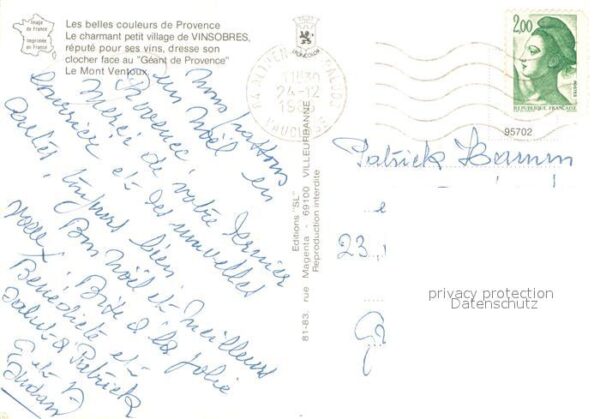 Image de France
Imprimée en France
Les belles couleurs de Provence
Le charmant petit village de VINSOBRES,
réputé pour ses vins, dresse son
clocher face au "Géant de Provence"
Le Mont Ventoux
nous passons
un Noël en
Provence
Merci de votre dernier
courrier et des nouvelles
toujours bien
Bon Noël et meilleurs
voeux! Bise à la jolie
Bénédicte et
salut à Patrick
Editions "SL"
81-83, rue Magenta - 69100 VILLEURBANNE
Reproduction interdite
24-12
VAUCLUSE
2,00
POSTES
REPUBLIQUE FRANCAISE
95702
Patrick
23
privacy protection
Datenschutz